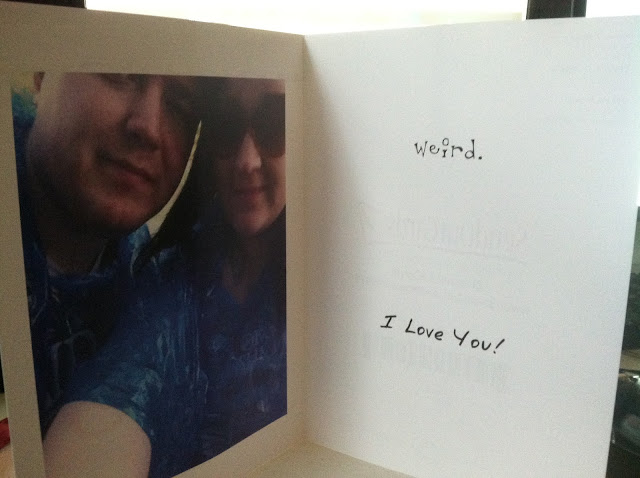 weird.
I Love You!